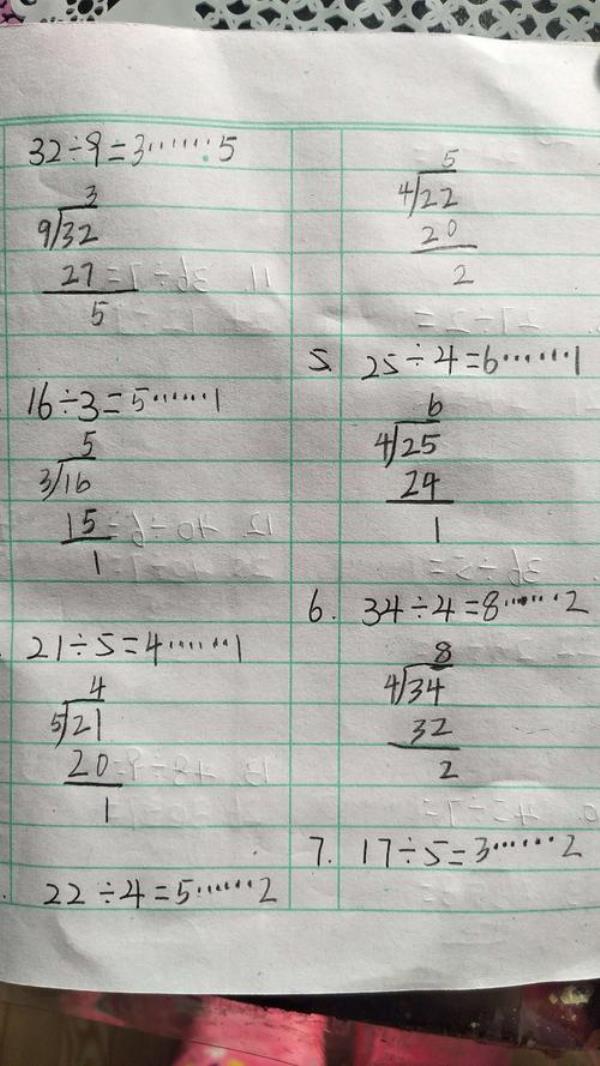 32÷9=3……5
3
9/32
27
5
16÷3=5……1
5
3/16
15
1
21÷5=4……1
4
5/21
20
1
22÷4=5……2
5
4/22
20
2
5. 25÷4=6……1
6
4/25
24
1
6. 34÷4=8……2
8
4/34
32
2
7. 17÷5=3……2